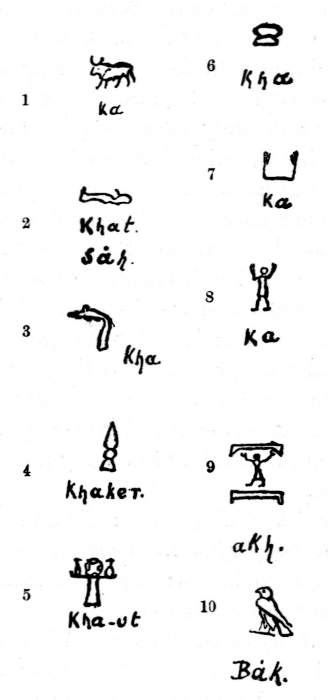 1
Ka
2
Khat.
Sȧh.
3
Kha
4
Khaker.
5
Kha-ut
6
Kha
7
Ka
8
Ka
9
aKh.
10
Bȧk.